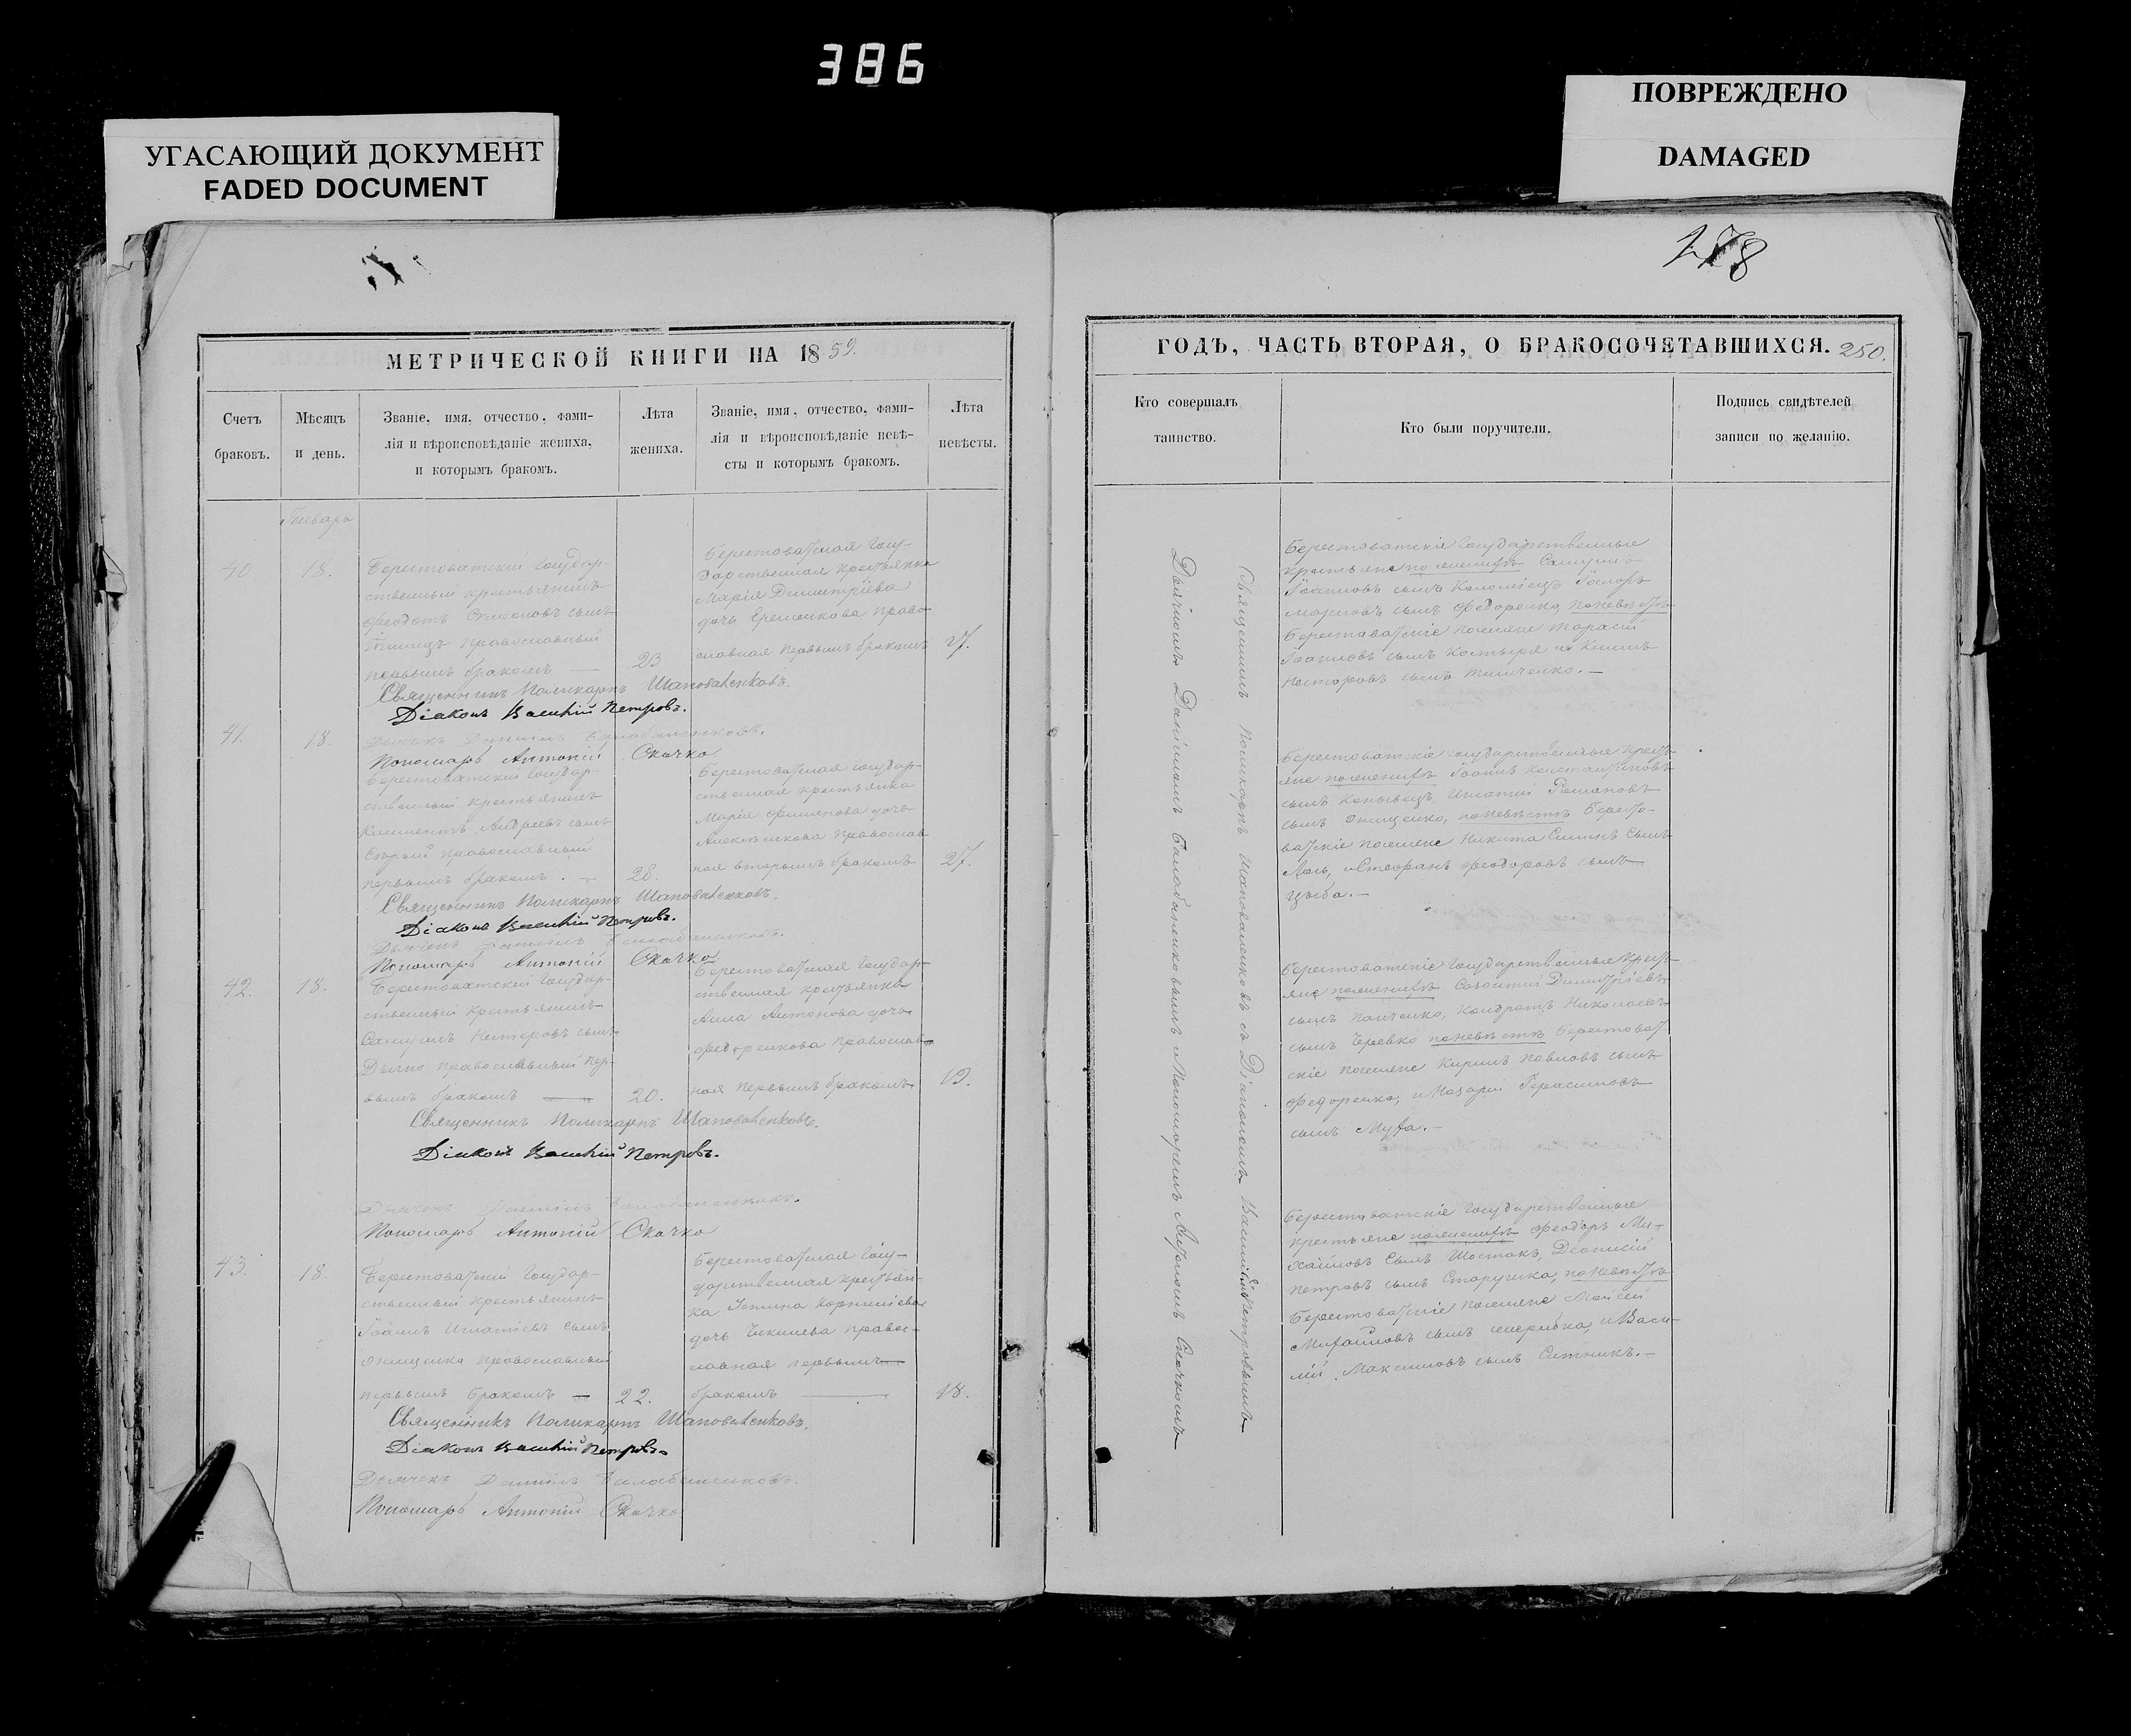 386
УГАСАЮЩИЙ ДОКУМЕНТ
FADED DOCUMENT
ПОВРЕЖДЕНО
DAMAGED
178
МЕТРИЧЕСКОЙ КНИГИ НА 1859.
Счетъ
браковъ.
Мѣсяцъ
и день.
Званіе, имя, отчество, фами-
лія и вѣроисповѣданіе жениха,
и которымъ бракомъ.
Лѣта
жениха.
Званіе, имя, отчество, фами-
лія и вѣроисповѣданіе невѣ-
сты и которымъ бракомъ.
Лѣта
невѣсты.
Генварь
40
18.
Берестоватскій государ-
ственный крестьянинъ
Феодотъ сынъ
православный
первымъ бракомъ
23
Берестоватская госу-
дарственная крестьянка
Марія Димитріева
дочь Еременкова право-
славная первымъ бракомъ
Священникъ Поликарпъ Шаповаленковъ.
Діаконъ Василій Петровъ.
Дьячекъ Даніилъ Балабаненковъ.
Пономарь Антоній Скачко
41.
18.
Берестоватскій государ-
ственный крестьянинъ
Климентъ Андреевъ сынъ
Сѣрый православный
первымъ бракомъ. —
28.
Берестоватская государ-
ственная крестьянка
Марія Филипова дочь
Алексѣнкова православ
ная вторымъ бракомъ
27.
Священникъ Поликарпъ Шаповаленковъ.
Діаконъ Василій Петровъ.
Дьячекъ Даніилъ Балабаненковъ.
Пономарь Антоній Скачко
42.
18.
Берестоватскій государ-
ственный крестьянинъ
Самуилъ Нестеровъ сынъ
православный пер-
вымъ бракомъ
20.
Берестоватская государ-
ственная крестьянка
Анна Антонова дочь
Федоренкова православ
ная первымъ бракомъ
19.
Священникъ Поликарпъ Шаповаленковъ.
Діаконъ Василій Петровъ.
Дьячекъ Даніилъ Балабаненковъ.
Пономарь Антоній Скачко
43.
18.
Берестоватскій государ-
ственный крестьянинъ
Іоаннъ Игнатіевъ сынъ
Онищенко православный
первымъ бракомъ —
22.
Берестоватская госу-
дарственная крестьян-
ка Корниліева
дочь православ-
славная первымъ
бракомъ
18.
Священникъ Поликарпъ Шаповаленковъ.
Діаконъ Василій Петровъ.
Дьячекъ Даніилъ Балабаненковъ.
Пономарь Антоній Скачко
ГОДЪ, ЧАСТЬ ВТОРАЯ, О БРАКОСОЧЕТАВШИХСЯ. 250.
Кто совершалъ
таинство.
Кто были поручители.
Подпись свидѣтелей
записи по желанію.
Священникъ Поликарпъ Шаповаленковъ съ Діакономъ Василіемъ Петровымъ
Дьячкомъ Даніиломъ Балабаненковымъ и Пономаремъ Антоніемъ Скачкомъ
Берестоватскіе государственные
крестьяне по женихѣ Самуилъ
Іоанновъ сынъ Коломіецъ
Марковъ сынъ Федоренко, по невѣстѣ
Берестоватскіе поселяне Тарасій
Іоанновъ сынъ Костыря и
Несторовъ сынъ Тимченко. —
Берестоватскіе государственные кресть
яне по женихѣ Іоаннъ Константиновъ
сынъ Игнатій Романовъ
сынъ Онищенко, по невѣстѣ Бересто-
ватскіе поселяне Никита сынъ
и Стефанъ Феодоровъ сынъ
Цыба. —
Берестоватскіе государственные кресть
яне по женихѣ Созонтій Димитріевъ
сынъ Панченко, Кондратъ Николаевъ
сынъ Черевко по невѣстѣ Берестоват
скіе поселяне Кирилъ Павловъ сынъ
Федоренко, и Назарій Герасимовъ
сынъ Муха. —
Берестоватскіе государственные
крестьяне по женихѣ Феодоръ Ми-
хайловъ сынъ Шостакъ, Діонисій
Петровъ сынъ Старушка, по невѣстѣ
Берестоватскіе поселяне Моисей
Михайловъ сынъ и Васи-
лій Максимовъ сынъ Ситникъ. —